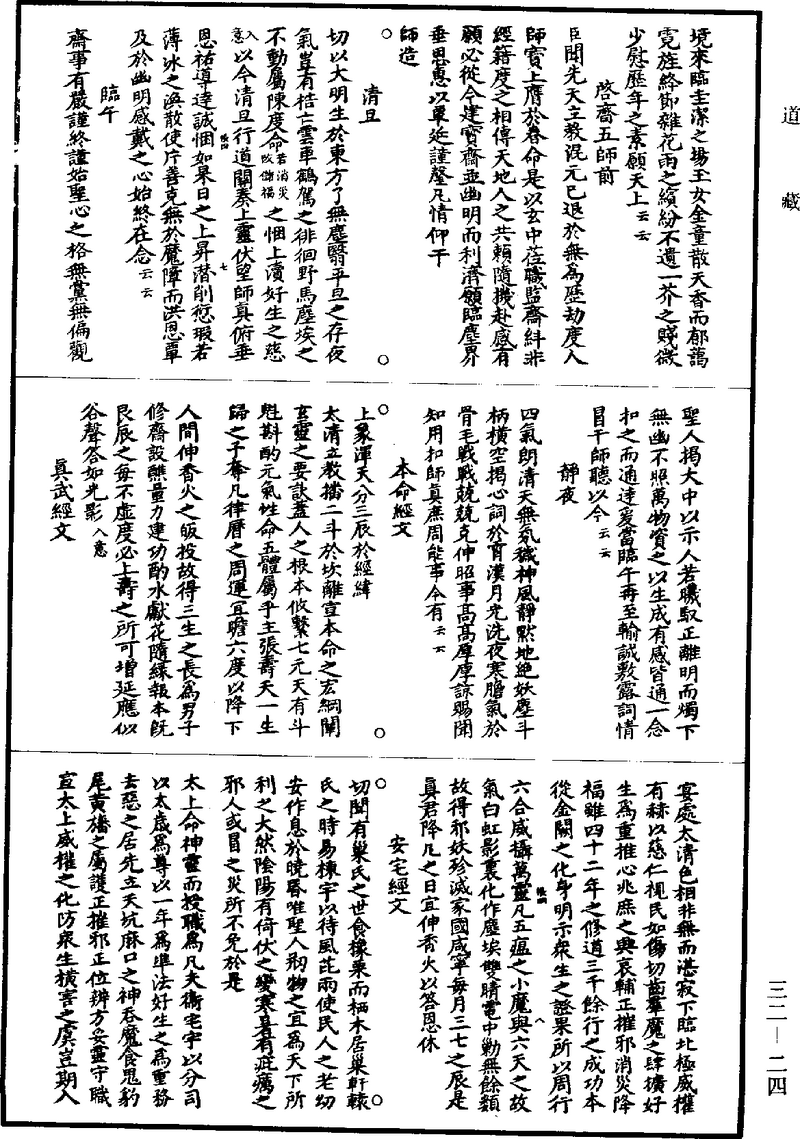 道藏
境來臨圭潔之場玉女金童散天香而郁藹
霓旌絳節雜花雨之繽紛不遺一芥之賤微
少慰歷年之素願天上云云
啓齋五師前
臣聞先天立教混元已退於無為歷劫度人
師寶上膺於眷命是以玄中莅職監齋糾非
經籍度之相傳天地人之共賴隨機赴感有
願必從今建寶齋亟幽明而利濟願臨塵界
垂恩惠以覃延謹罄凡情仰干
師造
清旦
切以大明生於東方了無塵翳平旦之存夜
氣豈有梏亡雲車鶴駕之徘徊野馬塵埃之
不動屬陳度命若消災改保福之悃上瀆好生之慈
入意以今清旦行道關奏上靈伏望師真俯垂
恩祐導達誠悃如杲日之上昇潛削愆瑕若
薄冰之渙散使片善克無於魔障而洪恩覃
及於幽明感戴之心始終在念云云
臨午
齋事有嚴謹終謹始聖心之格無黨無偏觀
聖人揭大中以示人若曦馭正離明而燭下
無幽不照萬物資之以生成有感皆通一念
扣之而通達爰當臨午再至輸誠敷露詞情
冒干師聽以今云云
靜夜
四氣朗清天無氛穢神風靜默地絶妖塵斗
柄橫空揭心詞於霄漢月光洗夜寒膽氣於
骨毛戰戰兢兢克伸昭事高高厚厚諒賜聞
知用扣師真庶周能事今有云云
本命經文
上象渾天分三辰於經緯
太清立教播二斗於坎離宣本命之宏綱闡
玄靈之要訣蓋人之根本攸繫七元天有斗
魁斟酌元氣性命五體屬乎主張壽夭一生
歸之予奪凡律曆之周運宜瞻六度以降下
人間伸香火之皈投故得三生之長為男子
修齋設醮量力建功酌水獻花隨緣報本旣
艮辰之每不虛度必上壽之所可增延應似
谷聲答如光影入意
真武經文
宴處太清色相非無而湛寂下臨北極威權
有赫以慈仁視民如傷切齒羣魔之肆擴好
生為重推心兆庶之興哀輔正摧邪消災降
福雖四十二年之修道三千餘行之成功本
從金闕之化身明示衆生之證果所以周行
六合威攝萬靈凡五瘟之小魔與六天之故
氣白虹影裏化作塵埃雙睛電中勦無餘類
故得邪妖殄滅家國咸寧每月三七之辰是
真君降凡之日宜伸香火以答恩休
安宅經文
切聞有巢氏之世食橡栗而栖木居巢軒轅
氏之時易棟宇以待風芘雨使民人之老幼
安作息於曉昏唯聖人剏物之宜為天下所
利之大然陰陽有倚伏之變寒暑有疵癘之
邪人或冒之災所不免於是
太上命神靈而授職為凡夫衛宅宇以分司
以太歲為尊以一年為準法好生之為重務
去惡之居先立天坑麻口之神吞魔食鬼豹
尾黄旛之屬護正摧邪正位辨方妥靈守職
宣太上威權之化防衆生橫害之虞豈期入
三二—二四